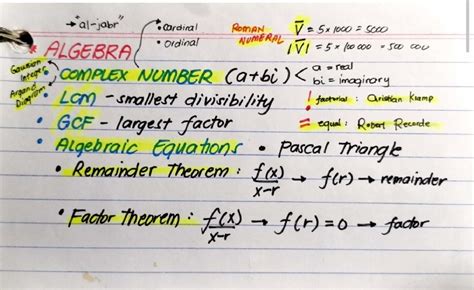 → "al-jabr"
• Cardinal
• Ordinal
ROMAN NUMERAL
V̅ = 5 x 1000 = 5000
|V̅| = 5 x 100 000 = 500 000
* ALGEBRA
Gaussian Integer
Argand Diagram
• COMPLEX NUMBER (a+bi) <
a = real
bi = imaginary
• LCM - smallest divisibility
! factorial : Christian Kramp
• GCF - largest factor
= equal : Robert Recorde
• Algebraic Equations • Pascal Triangle
• Remainder Theorem : f(x)/x-r → f(r) → remainder
• Factor Theorem : f(x)/x-r → f(r) = 0 → factor